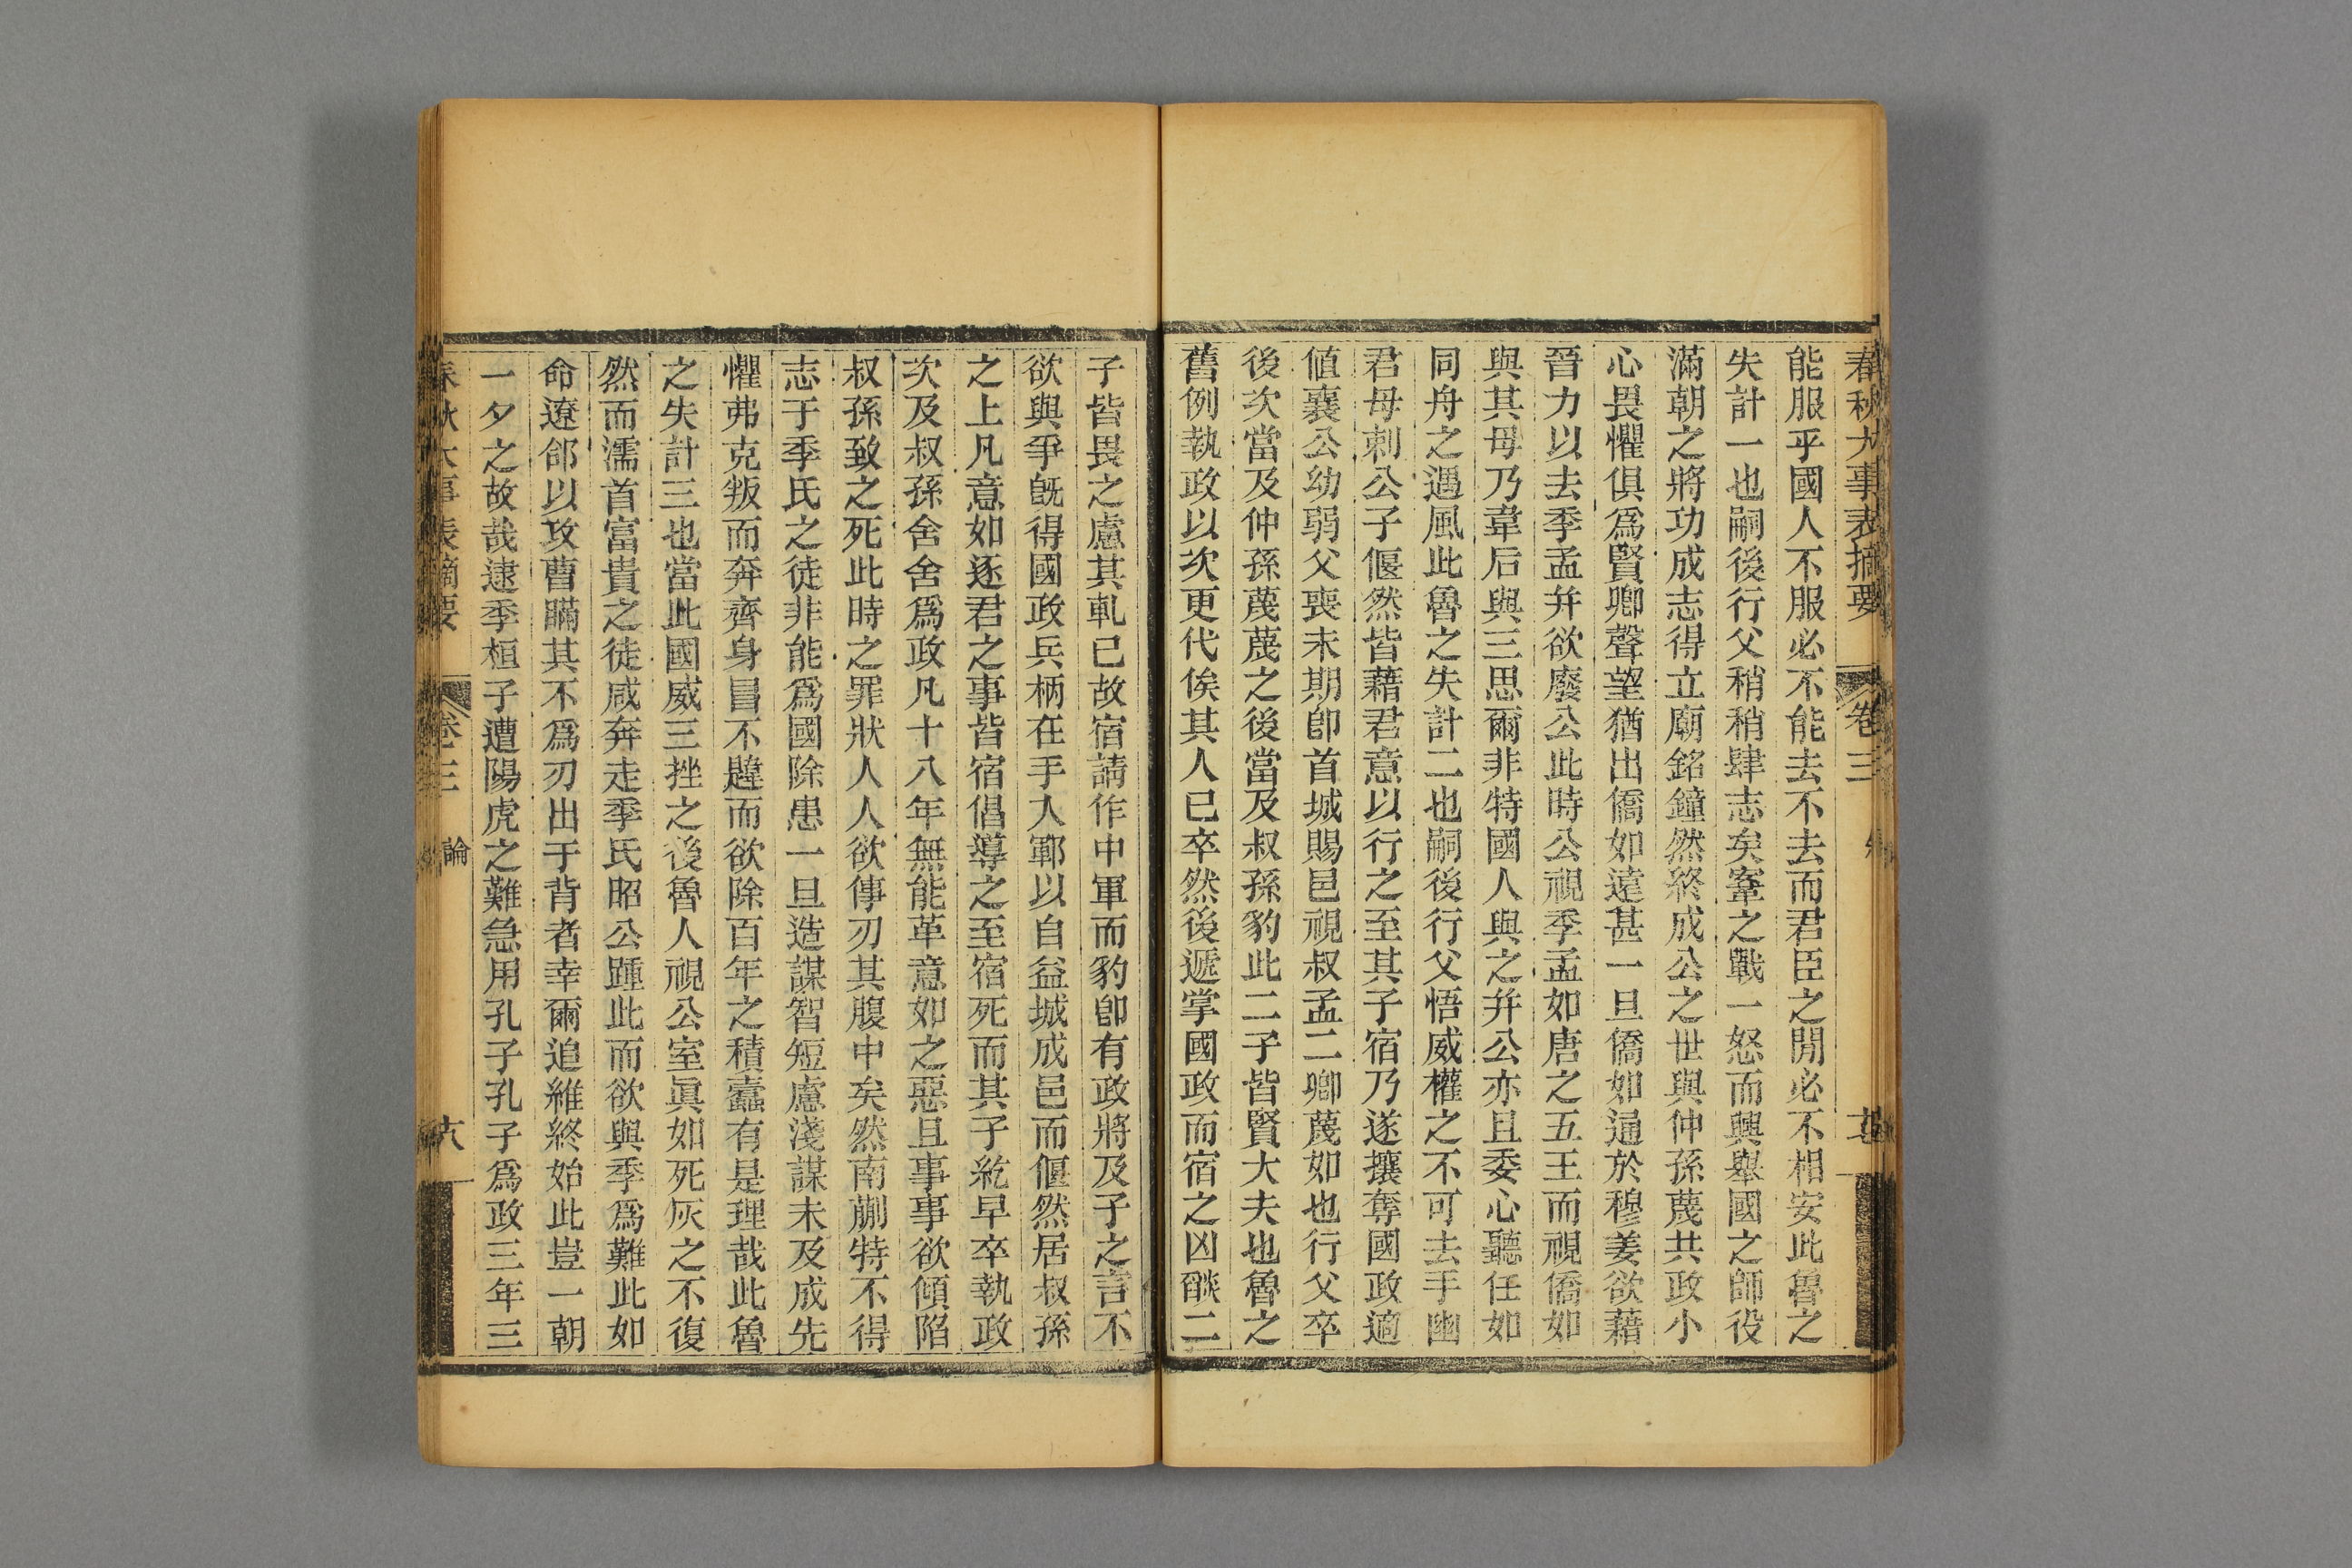 春秋大事表摘要 卷三
能服乎國人不服必不能去不去而君臣之閒必不相安此魯之
失計一也嗣後行父稍稍肆志矣鞌之戰一怒而興舉國之師役
滿朝之將功成志得立廟銘鐘然終成公之世與仲孫蔑共政小
心畏懼俱爲賢卿聲望猶出僑如遠甚一旦僑如通於穆姜欲藉
晉力以去季孟幷欲廢公此時公視季孟如唐之五王而視僑如
與其母乃韋后與三思爾非特國人與之幷公亦且委心聽任如
同舟之遇風此魯之失計二也嗣後行父悟威權之不可去手幽
君母刺公子偃然皆藉君意以行之至其子宿乃遂攘奪國政適
値襄公幼弱父喪未期卽首城賜邑視叔孟二卿蔑如也行父卒
後次當及仲孫蔑蔑之後當及叔孫豹此二子皆賢大夫也魯之
舊例執政以次更代俟其人已卒然後遞掌國政而宿之凶燄二
子皆畏之慮其軋已故宿請作中軍而豹卽有政將及子之言不
欲與爭旣得國政兵柄在手入鄆以自益城成邑而偃然居叔孫
之上凡意如逐君之事皆宿倡導之至宿死而其子紇早卒執政
次及叔孫舍舍爲政凡十八年無能革意如之惡且事事欲傾陷
叔孫致之死此時之罪狀人人欲傳刃其腹中矣然南蒯特不得
志于季氏之徒非能爲國除患一旦造謀智短慮淺謀未及成先
懼弗克叛而奔齊身冒不韙而欲除百年之積蠹有是理哉此魯
之失計三也當此國威三挫之後魯人視公室眞如死灰之不復
然而濡首富貴之徒咸奔走季氏昭公踵此而欲與季爲難此如
命遼郃以攻曹瞞其不爲刃出于背者幸爾追維終始此豈一朝
一夕之故哉逮季桓子遭陽虎之難急用孔子孔子爲政三年三
春秋大事表摘要 卷三 論